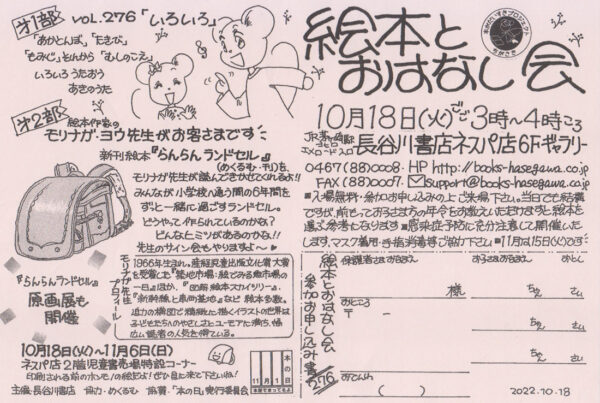 オ1部 VOL.276 「いろいろ」
「あかとんぼ」「たきび」
「もみじ」とんから「むしのこえ」
いろいろ うたおう
あきのうた
オ2部
絵本作家の
モリナガ・ヨウ先生がお客さまです
新刊絵本『らんらん ランドセル』
(めくるむ・刊)を
モリナガ先生が読んできかせてくれるよ!!
みんなが小学校へ通う間の6年間を
ずっと一緒に過ごすランドセル。
どうやって作られているのかな?
どんなヒミツがあるのかな!!
先生のサイン会もやりますよ〜
『らんらんランドセル』
原画展も
開催
モリナガ先生
プロフィール
1966年生まれ。産経児童出版文化賞大賞
を受賞した『築地市場:絵でみる魚市場の
一日』ほか、『図解絵本スカイツリー』、
『新幹線と車両基地』など絵本多数。
迫力の構図で精緻に描くイラストの世界は
子どもたちへのやさしさとユーモアに満ち、幅
広い読者の人気を得ている。
10月18日(火)〜11月6日(日)
ネスパ店2階児童書売場特設コーナー
印刷される前のホンモノの絵だよ!ぜひ見に来て下さいね!
主催・長谷川書店 協力・めくるむ 協賛・「本の日」実行委員会
本の日
11月1
絵本と
おはなし会
10月18日(火)ごご3時〜4時ころ
JR茅ヶ崎駅
北口
エメロードスロ
長谷川書店ネスパ店6Fギャラリー
0467(88)0008・HP http://books-hasegawa.co.jp
FAX (88)0007・✉support@books-hasegawa.co.jp
■入場無料・参加お申し込みの上ご来場下さい。当日でも結構
ですが、前もってお子さま方の年令をお教えいただけますと絵本を
選ぶ参考となります ■感染症予防に充分注意して開催いた
します。マスク着用・手指消毒等ご協力下さい ■11月は15日(火)です
絵本とおはなし会
参加お申し込み書276
保護者さまおなまえ
様
お子さまおなまえ
おとし
ちゃん さい
ちゃん さい
ちゃん さい
おところ
〒 -
おでんわ
( )
2022.10.18